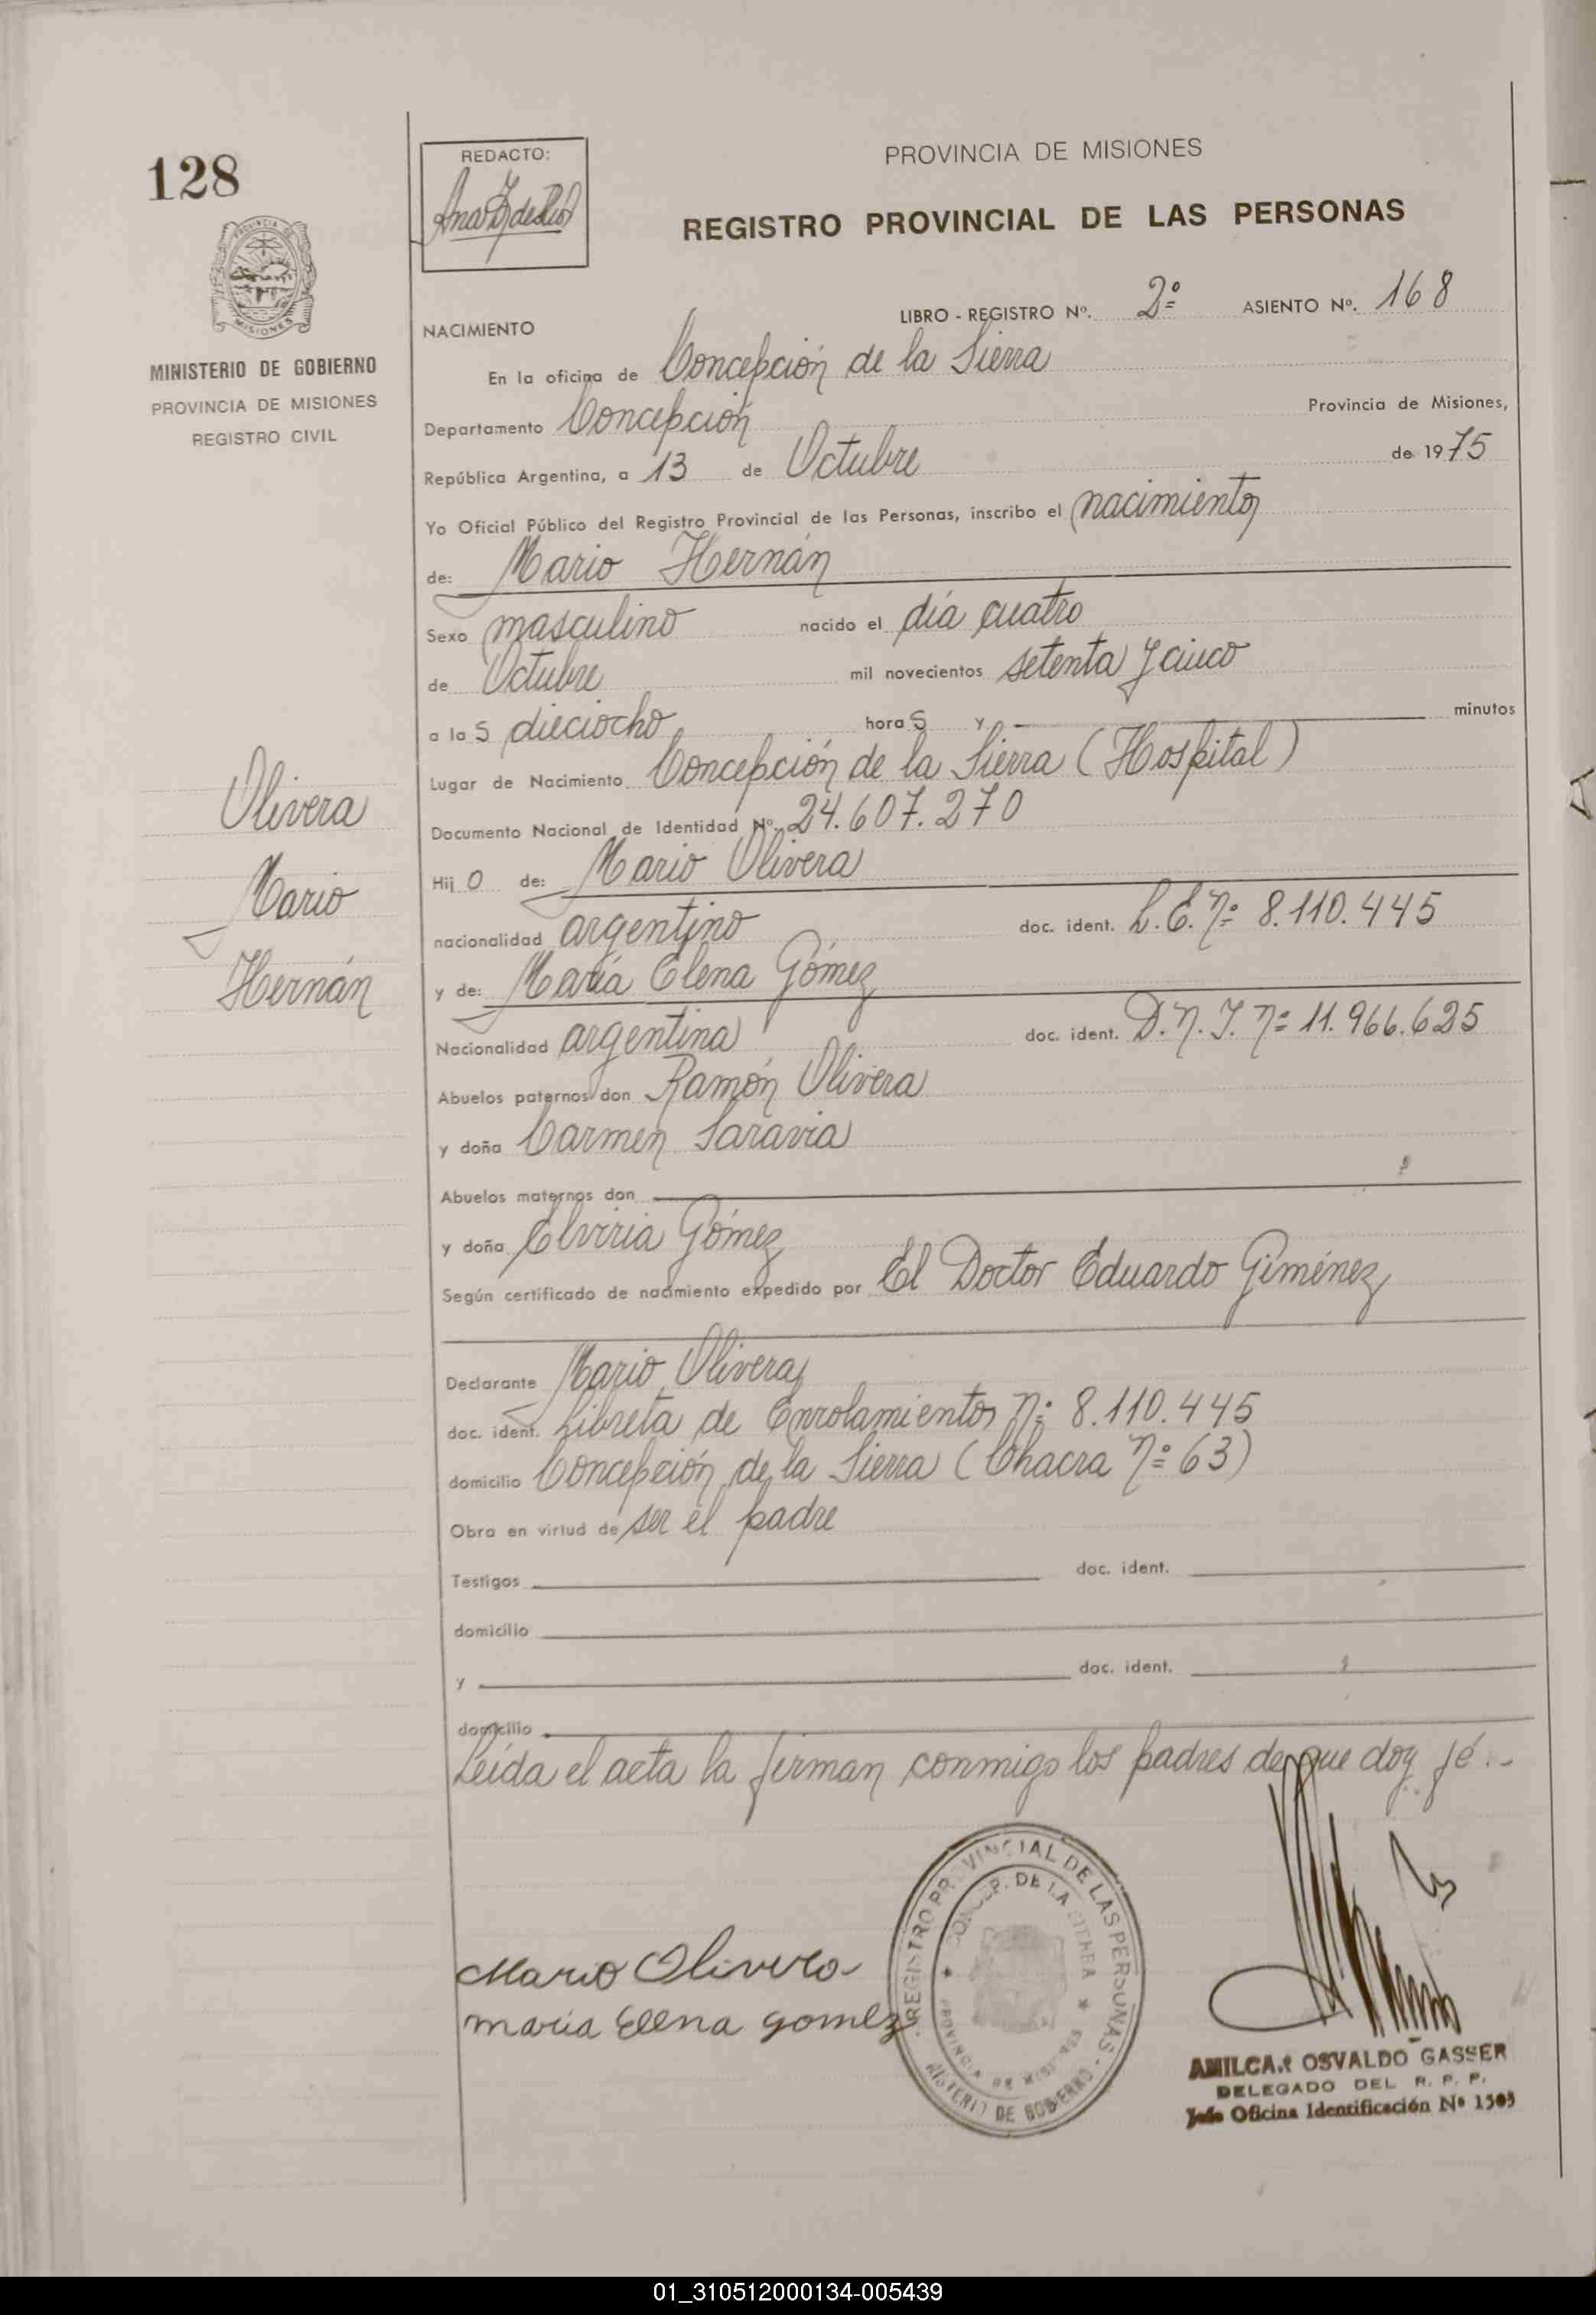 128
REDACTO:
PROVINCIA DE MISIONES
REGISTRO PROVINCIAL DE LAS PERSONAS
PROVINCIA DE MISIONES
MINISTERIO DE GOBIERNO
PROVINCIA DE MISIONES
REGISTRO CIVIL
LIBRO - REGISTRO Nº. 2º ASIENTO Nº. 168
NACIMIENTO
En la oficina de Concepción de la Sierra
Departamento Concepción Provincia de Misiones,
República Argentina, a 13 de Octubre de 1975
Yo Oficial Público del Registro Provincial de las Personas, inscribo el nacimiento
de: Mario Hernán
Sexo masculino nacido el día cuatro
de Octubre mil novecientos setenta y cinco
a las dieciocho horas y — minutos
Lugar de Nacimiento Concepción de la Sierra (Hospital)
Documento Nacional de Identidad Nº. 24.607.270
Hijo de: Mario Olivera
nacionalidad argentino doc. ident. L.E. nº 8.110.445
y de: María Elena Gómez
Nacionalidad argentina doc. ident. D.N.I. nº 11.966.625
Abuelos paternos don Ramón Olivera
y doña Carmen Saravia
Abuelos maternos don
y doña Elviria Gómez
Según certificado de nacimiento expedido por El Doctor Eduardo Giménez
Declarante Mario Olivera
doc. ident. Libreta de Enrolamiento nº 8.110.445
domicilio Concepción de la Sierra (Chacra nº 63)
Obra en virtud de ser el padre
Testigos doc. ident.
domicilio
y doc. ident.
domicilio
Leída el acta la firman conmigo los padres de que doy fé.-
Olivera
Mario
Hernán
Mario Olivera
maria Elena gomez
REGISTRO PROVINCIAL DE LAS PERSONAS - MINISTERIO DE GOBIERNO
CONCEP. DE LA SIERRA
PROVINCIA DE MISIONES
AMILCAR OSVALDO GASSER
DELEGADO DEL R. P. P.
Jefe Oficina Identificación Nº 1505
01_310512000134-005439